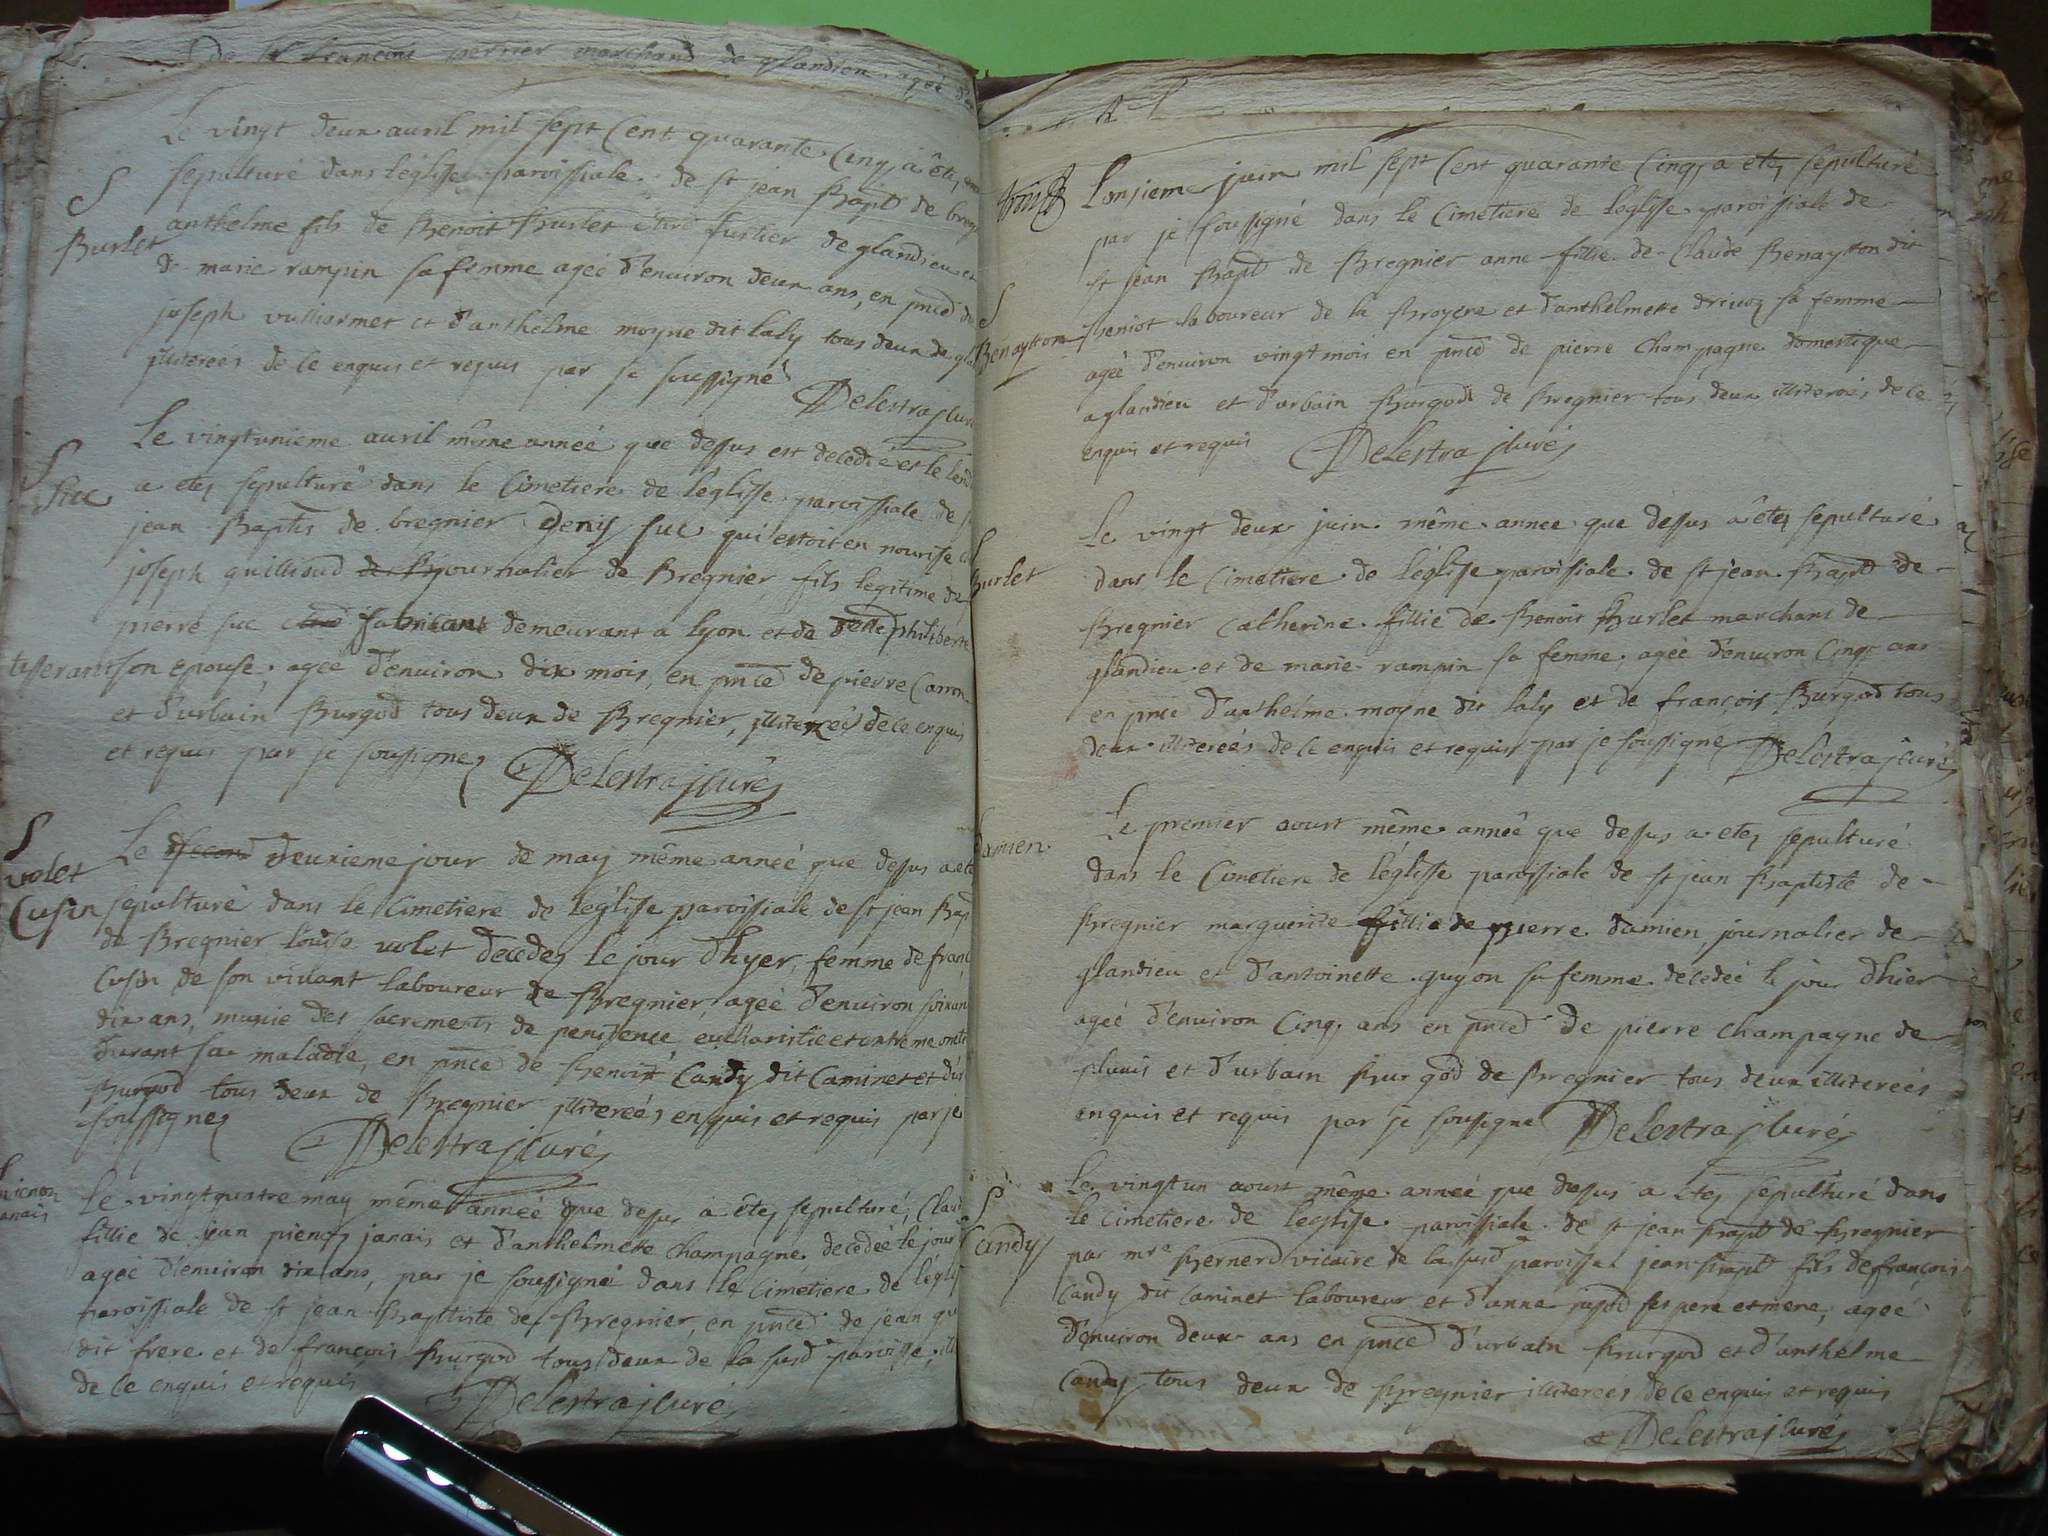 De françois perrier marchand de glandieu agée d'en
Le vingt deux auril mil sept Cent quarante Cinq, a êtez
sepulturé dans l'eglisse paroissiale de st jean Bapt de
S
Burlet
anthelme fils de Benoit Burlet de glandieu et
de marie rampin sa femme ageé d'enuiron deux ans, en pnce de
joseph vulliermet et d'anthelme moyne dit laly tous deux de
illitereés de ce enquis et requis par je soussigné
Delestra j Curé
Le vingtunieme auril même anneé que dessus est decedé et le
S
Suc
a etez sepulturé dans le Cimetiere de l'eglisse paroissiale de
jean Baptis de bregnier Denis suc qui estoit en nourisse
joseph guillioud journalier de Bregnier, fils legitime de
pierre suc fabricant demeurant a lyon et de delle philiberte
tisserant son epouse, ageé d'enuiron dix mois, en pnce de pierre
et d'urbain Burgod tous deux de Bregnier, illitereés de ce enquis
et requis par je soussignez Delestra j Curéz
S
volet
Cusin
Le second deuxieme jour de may même anneé que dessus a
sepulturé dans le Cimetiere de l'eglisse paroissiale de st jean Bap
de Bregnier louise volet decedez le jour d'hyer, femme de
Cusin de son viuant laboureur de Bregnier, ageé d'enuiron
dix ans, munie des sacrements de penitence eucharistie et
durant sa maladie, en pnce de Benoit Candy dit Caminet et
Burgod tous deux de Bregnier illitereés enquis et requis par je
soussignez Delestra j Curéz
Le vingtquatre may même anneé que dessus a êtez sepulturé,
janais
fillie de jean janais et d'anthelmette Champagne decedeé le jour
ageé d'enuiron dix ans, par je soussigné dans le Cimetiere de
paroissiale de st jean Baptiste de Bregnier, en pnce de jean
dit frere et de françois Burgod tous deux de la susd paroisse,
de ce enquis et requis Delestra j Curé
L'onsieme juin mil sept Cent quarante Cinq, a etez sepulturé
par je soussigné dans le Cimetiere de l'eglisse paroissiale de
st jean Bapt de Bregnier anne fillie de Claude Benayton dit
S
Benayton
beniot laboureur de la Broyere et d'anthelmette sa femme
ageé d'enuiron vingt mois en pnce de pierre Champagne domestique
a glandieu et d'urbain Burgod de Bregnier tous deux illitereés de ce
enquis et requis Delestra j Curéz
Le vingt deux juin même annee que dessus a êtez sepulturé
S
Burlet
dans le Cimetiere de l'églisse paroissiale de st jean Bapt de
Bregnier Catherine fillie de Benoit Burlet marchant de
glandieu et de marie rampin sa femme ageé d'enuiron Cinq ans
en pnce d'anthelme moyne dit laly et de françois Burgod tous
deux illitereés de ce enquis et requis par je soussignez Delestra j Curéz
Le premier aoust même anneé que dessus a etez sepulturé
Damien
dans le Cimetiere de l'églisse paroissiale de st jean Baptiste de
Bregnier marguerite fillie de pierre damien, journalier de
glandieu et d'antoinette guyon sa femme decedeé le jour d'hier
ageé d'enuiron Cinq ans en pnce de pierre Champagne de
pluuis et d'urbain Burgod de Bregnier tous deux illitereés
enquis et requis par je soussigné Delestra j Curéz
Le vingtun aoust même anneé que dessus a êtez sepulturé dans
S
Candy
le Cimetiere de l'eglisse paroissiale de st jean Bapt de Bregnier
par mre Bernerd vicaire de la susd paroisse jean Bapt fils de françois
Candy dit Caminet laboureur et d'anne ses pere et mere, ageé
d'enuiron deux ans en pnce d'urbain Burgod et d'anthelme
Candy tous deux de Bregnier illitereés de ce enquis et requis
Delestra j Curéz